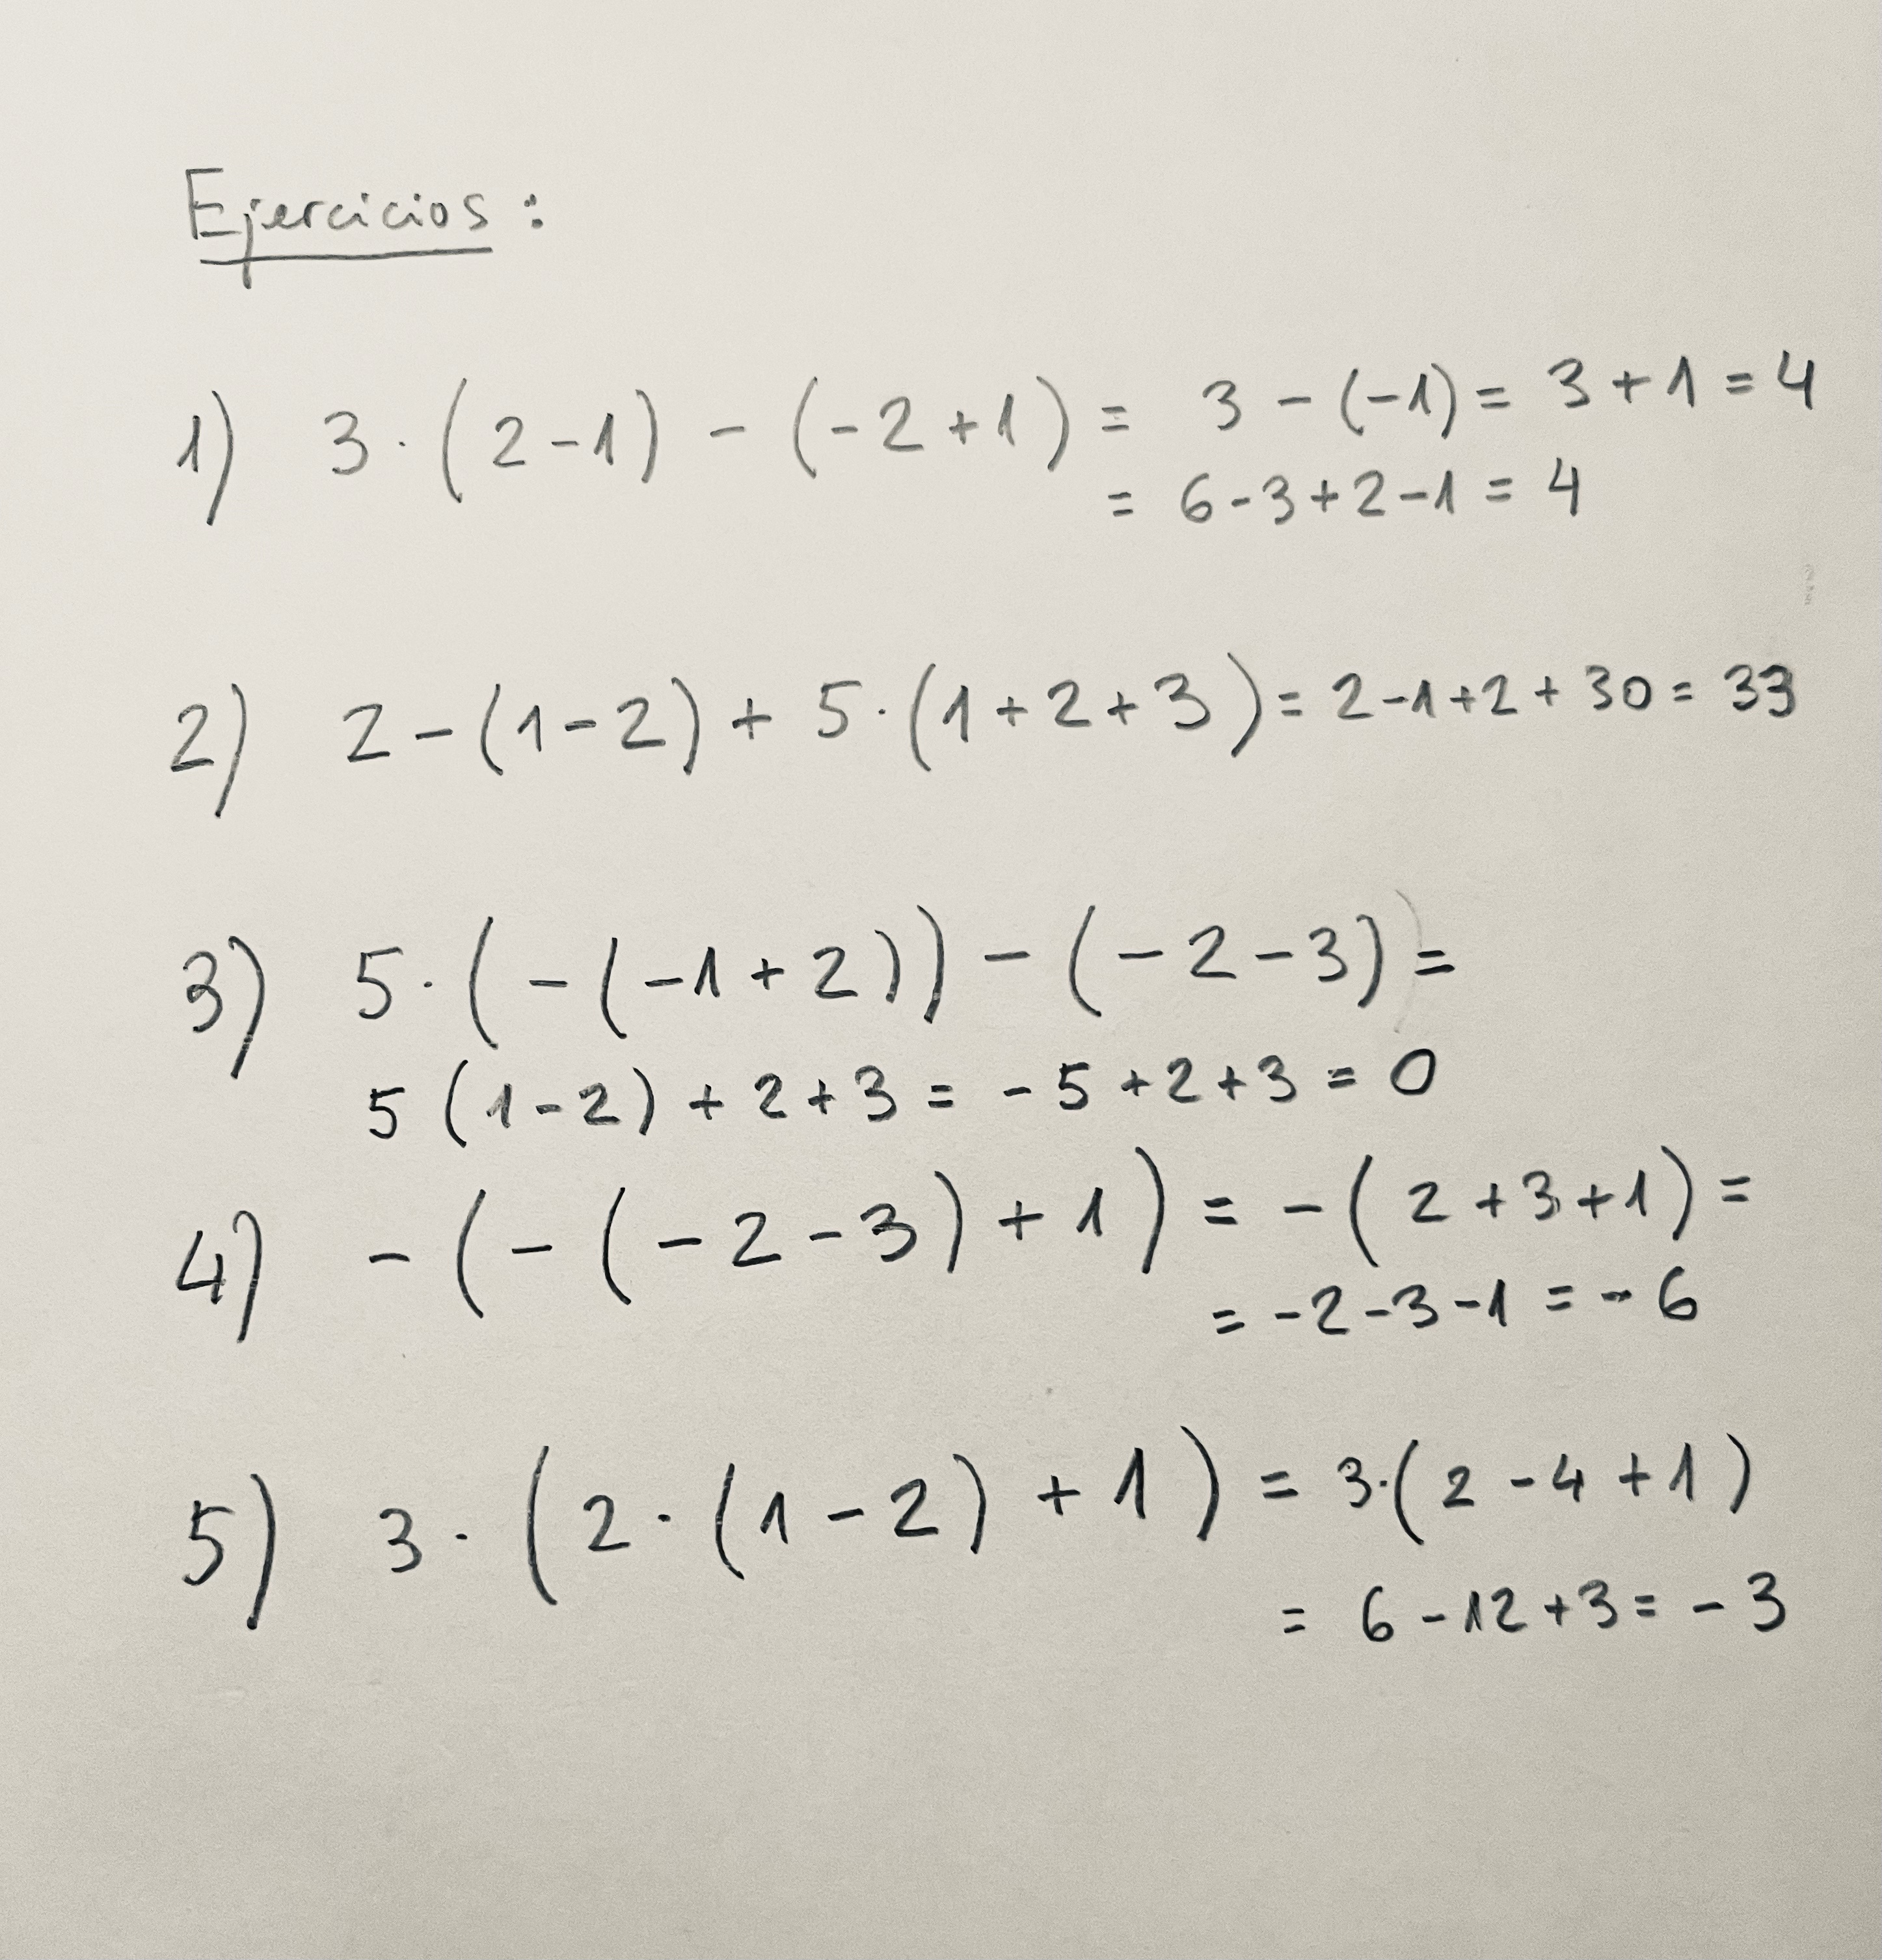 Ejercicios :
1) 3 · (2-1) - (-2+1) = 3 - (-1) = 3 + 1 = 4
= 6-3+2-1 = 4
2) 2 - (1-2) + 5·(1+2+3) = 2-1+2+30 = 33
3) 5·(-(-1+2)) - (-2-3) =
5 (1-2) + 2+3 = -5+2+3 = 0
4) -(-(-2-3)+1) = -(2+3+1) =
= -2-3-1 = -6
5) 3 · (2·(1-2) + 1) = 3·(2-4+1)
= 6-12+3 = -3